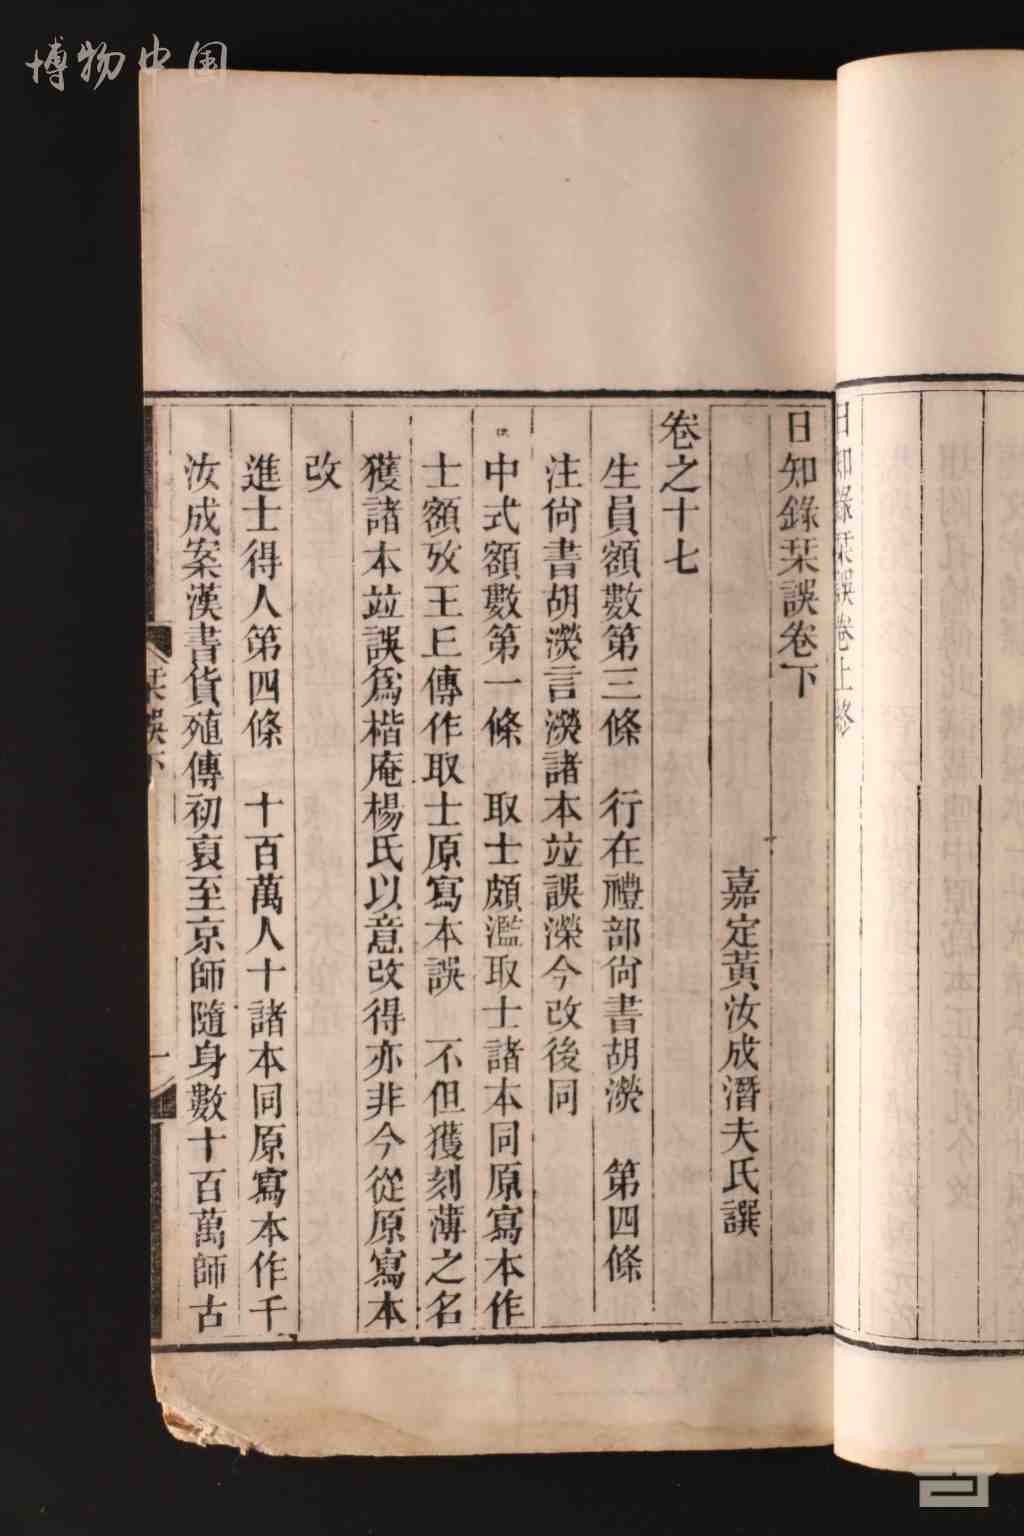 博物中国
日知錄栞誤卷上終
日知錄栞誤卷下
嘉定黃汝成潛夫氏譔
卷之十七
生員額數第三條　行在禮部尙書胡濙　第四條
注尙書胡濙言濙諸本竝誤濼今改後同
中式額數第一條　取士頗濫取士諸本同原寫本作
士額攷王㠪傳作取士原寫本誤　不但獲刻薄之名
獲諸本竝誤爲楷庵楊氏以意改得亦非今從原寫本
改
進士得人第四條　十百萬人十諸本同原寫本作千
汝成案漢書貨殖傳初裒至京師隨身數十百萬師古
栞誤下
一